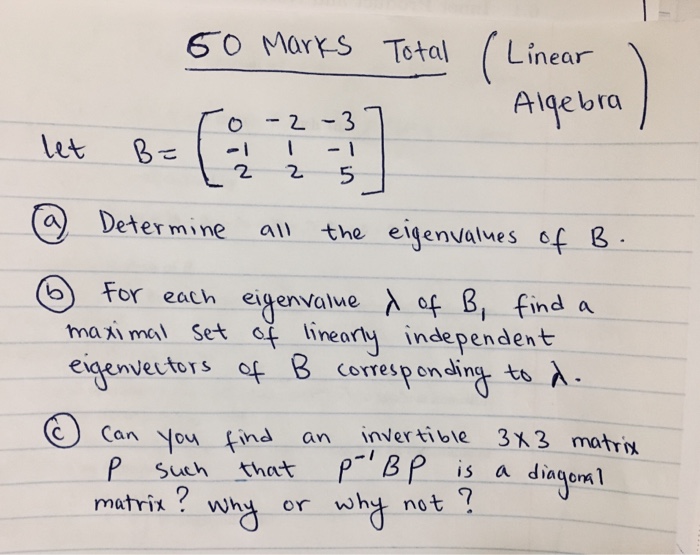 60 Marks Total (Linear Algebra)
let B = [0 -2 -3
-1 1 -1
2 2 5]
(a) Determine all the eigenvalues of B.
(b) For each eigenvalue λ of B, find a
maximal set of linearly independent
eigenvectors of B corresponding to λ.
(c) Can you find an invertible 3x3 matrix
P such that P⁻¹BP is a diagonal
matrix? Why or why not?